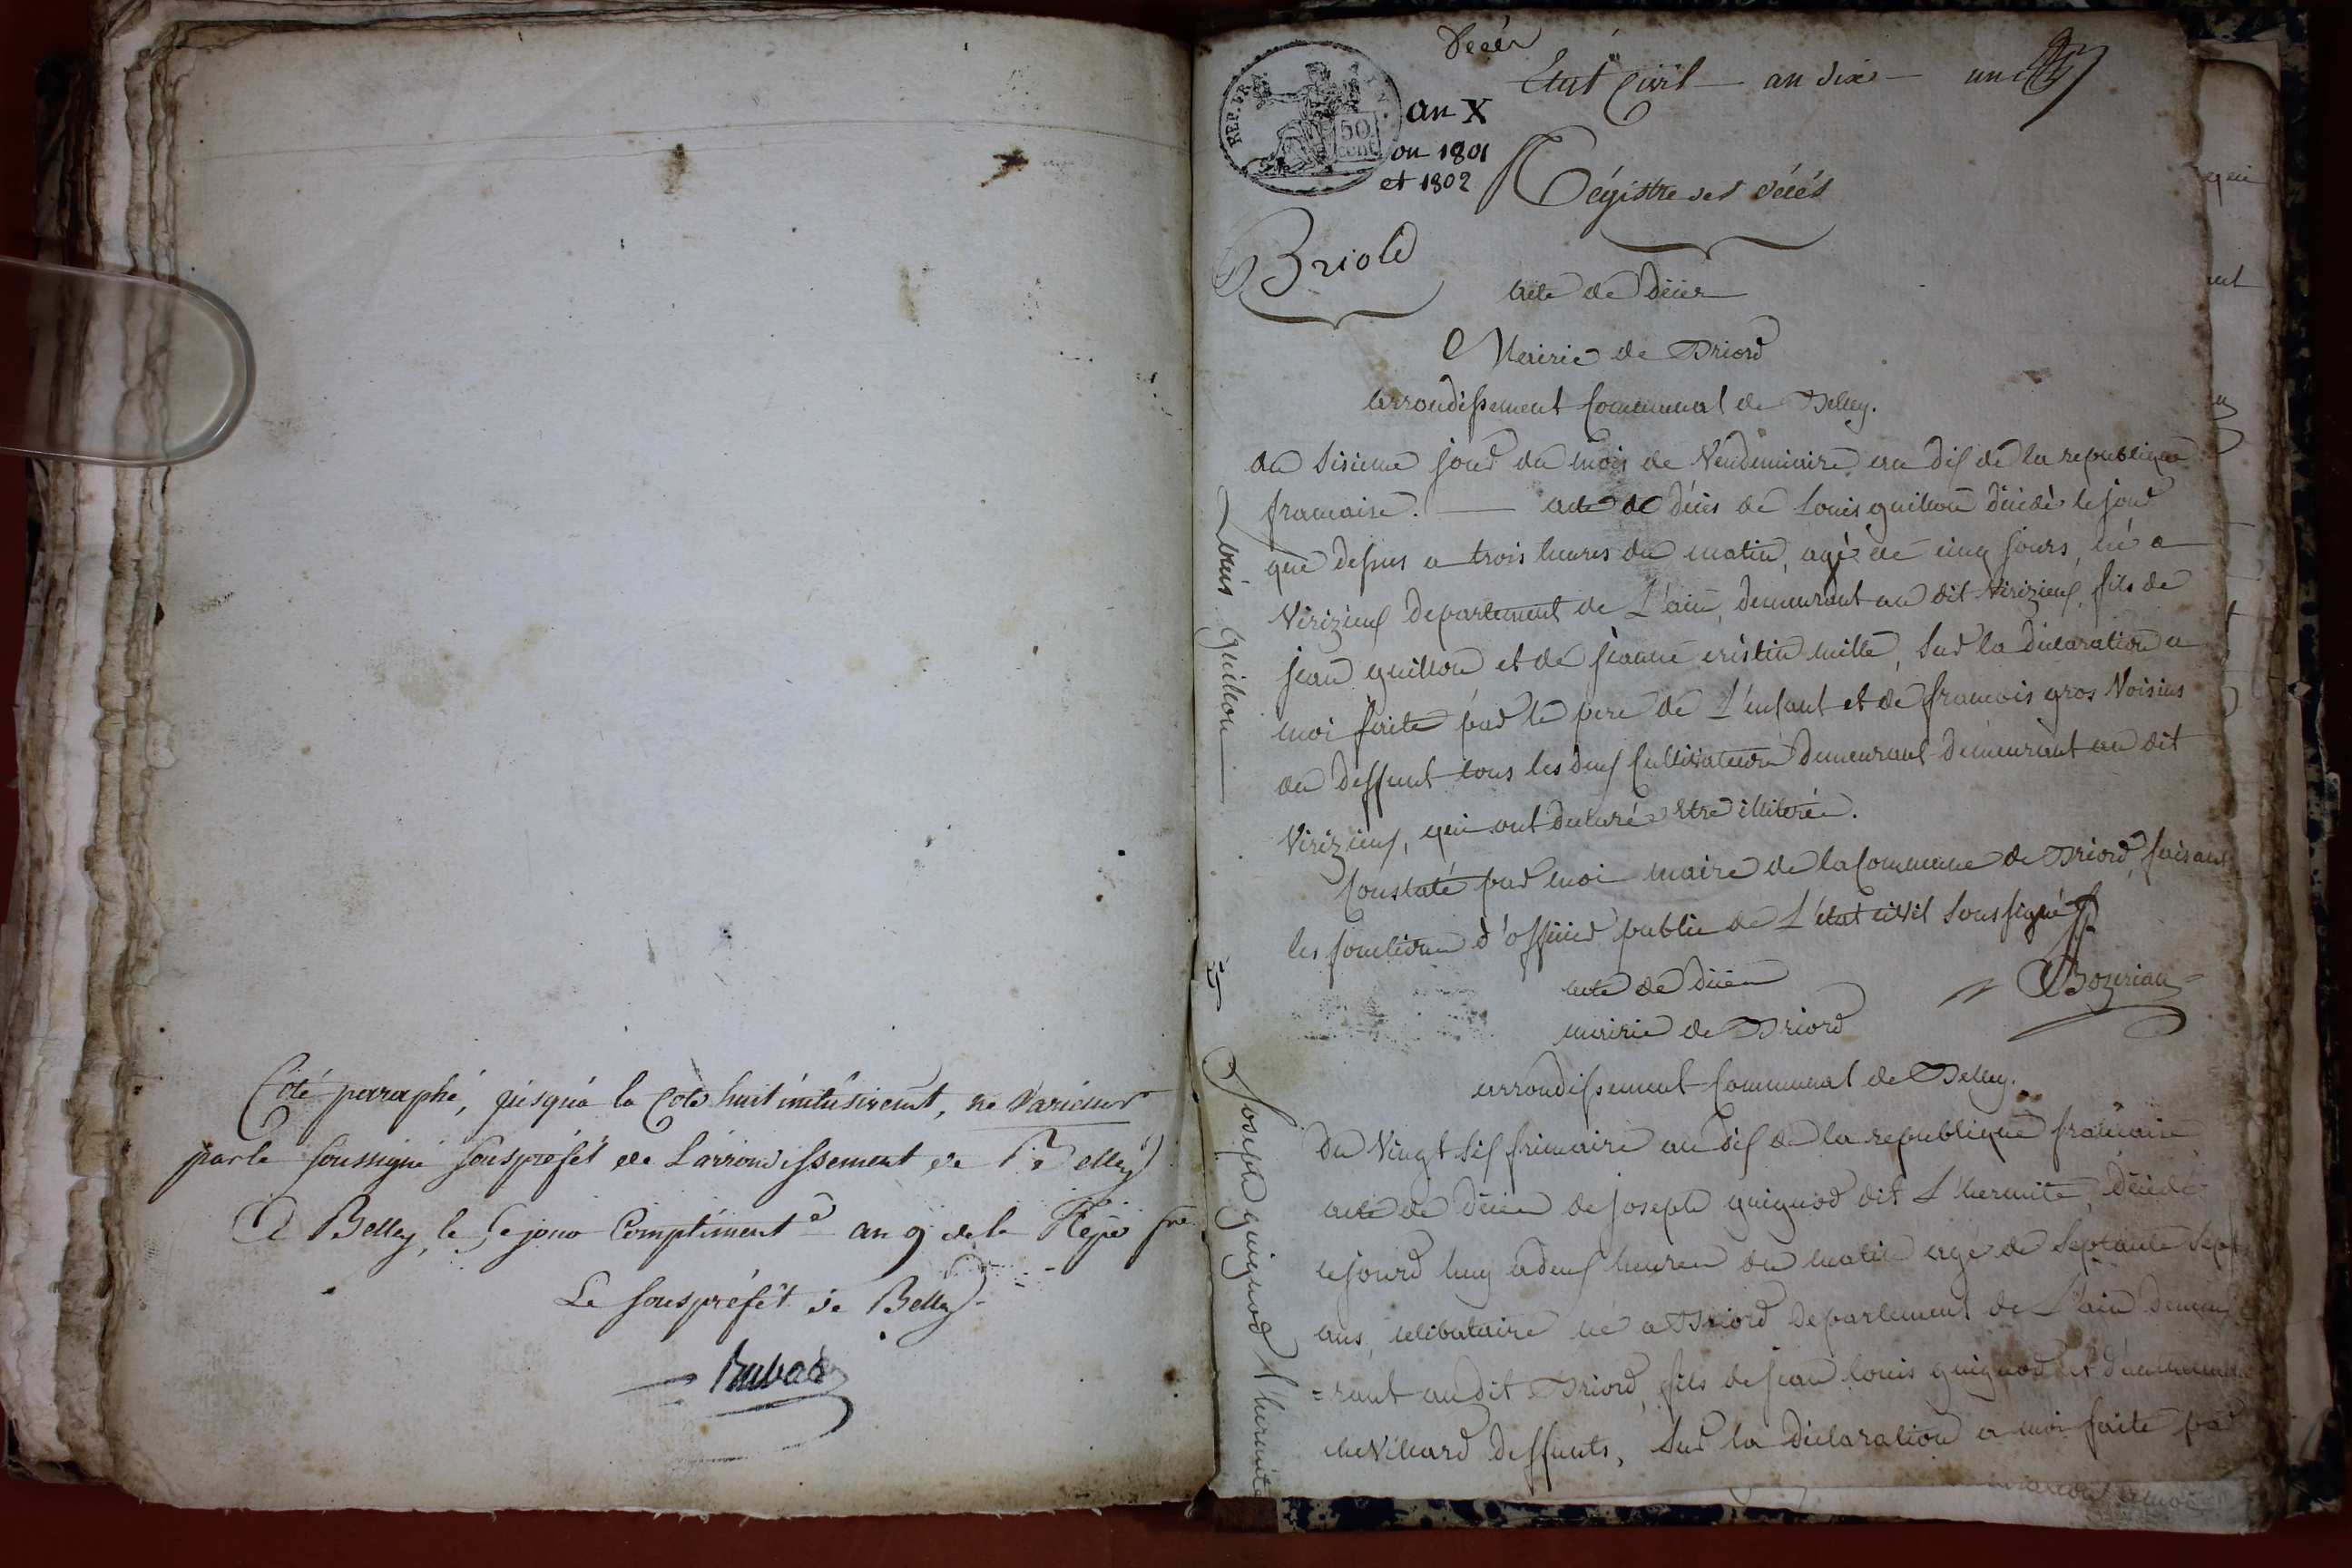 Coté paraphé, jusqu'à la Cote huit inclusivement, ne varietur
par le soussigné souspréfét de L'arrondissement de Belley
A Belley, le 5e jour Complément.e an 9 de la Répe fse
Le souspréfét de Belley
Décès
Etat Civil — an dix — un
REP. FRA
50 cent
an X
ou 1801
et 1802
Régistre des décés
Briord
acte de décès
Mairie de Briord
arrondissement Communal de Belley.
du sisieme jour du mois de Vendemiaire an dix de la republique
francaise. — acte de décès de Louis guillon décédé le jour
que dessus a trois heures du matin, agé de cinq jours, né a
Virizieux departement de L'ain, demeurant au dit Virizieux, fils de
jean guillon et de jeanne cristin mille, sur la déclaration a
moi faite par le pere de L'enfant et de francois gros Voisins
du deffunt tous les deux Cultivateurs demeurant demeurant au dit
Virizieux, qui ont declaré etre illiterés.
Constaté par moi maire de la Commune de Briord, faisant
les fonctions d'officier public de L'état civil soussigné
Louis Guillon
Bozerian
acte de décès
mairie de Briord
arrondissement Communal de Belley.
du vingt six frimaire an dix de la republique francaise
acte de décès de joseph guignod dit L'hermite, décédé
cejourd huy a deux heures du matin agé de septante sept
ans, celibataire né a Briord departement de L'ain demeu
=rant au dit Briord, fils de jean louis guignod et
chevillard deffunts, sur la déclaration a moi faite par
Joseph guignod l'hermite